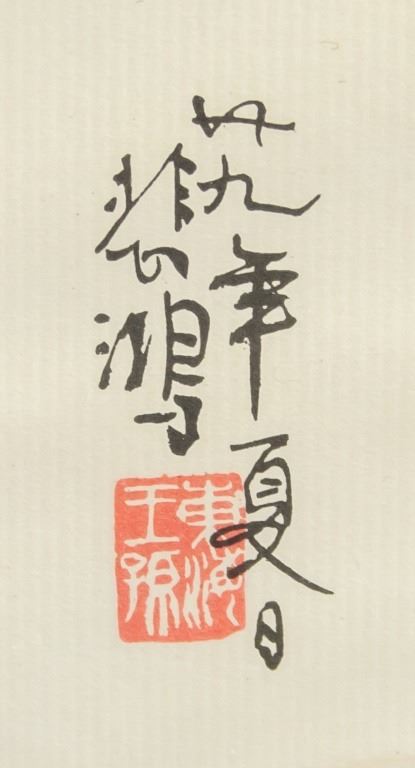 廿九年夏日
悲鴻
東海王孫